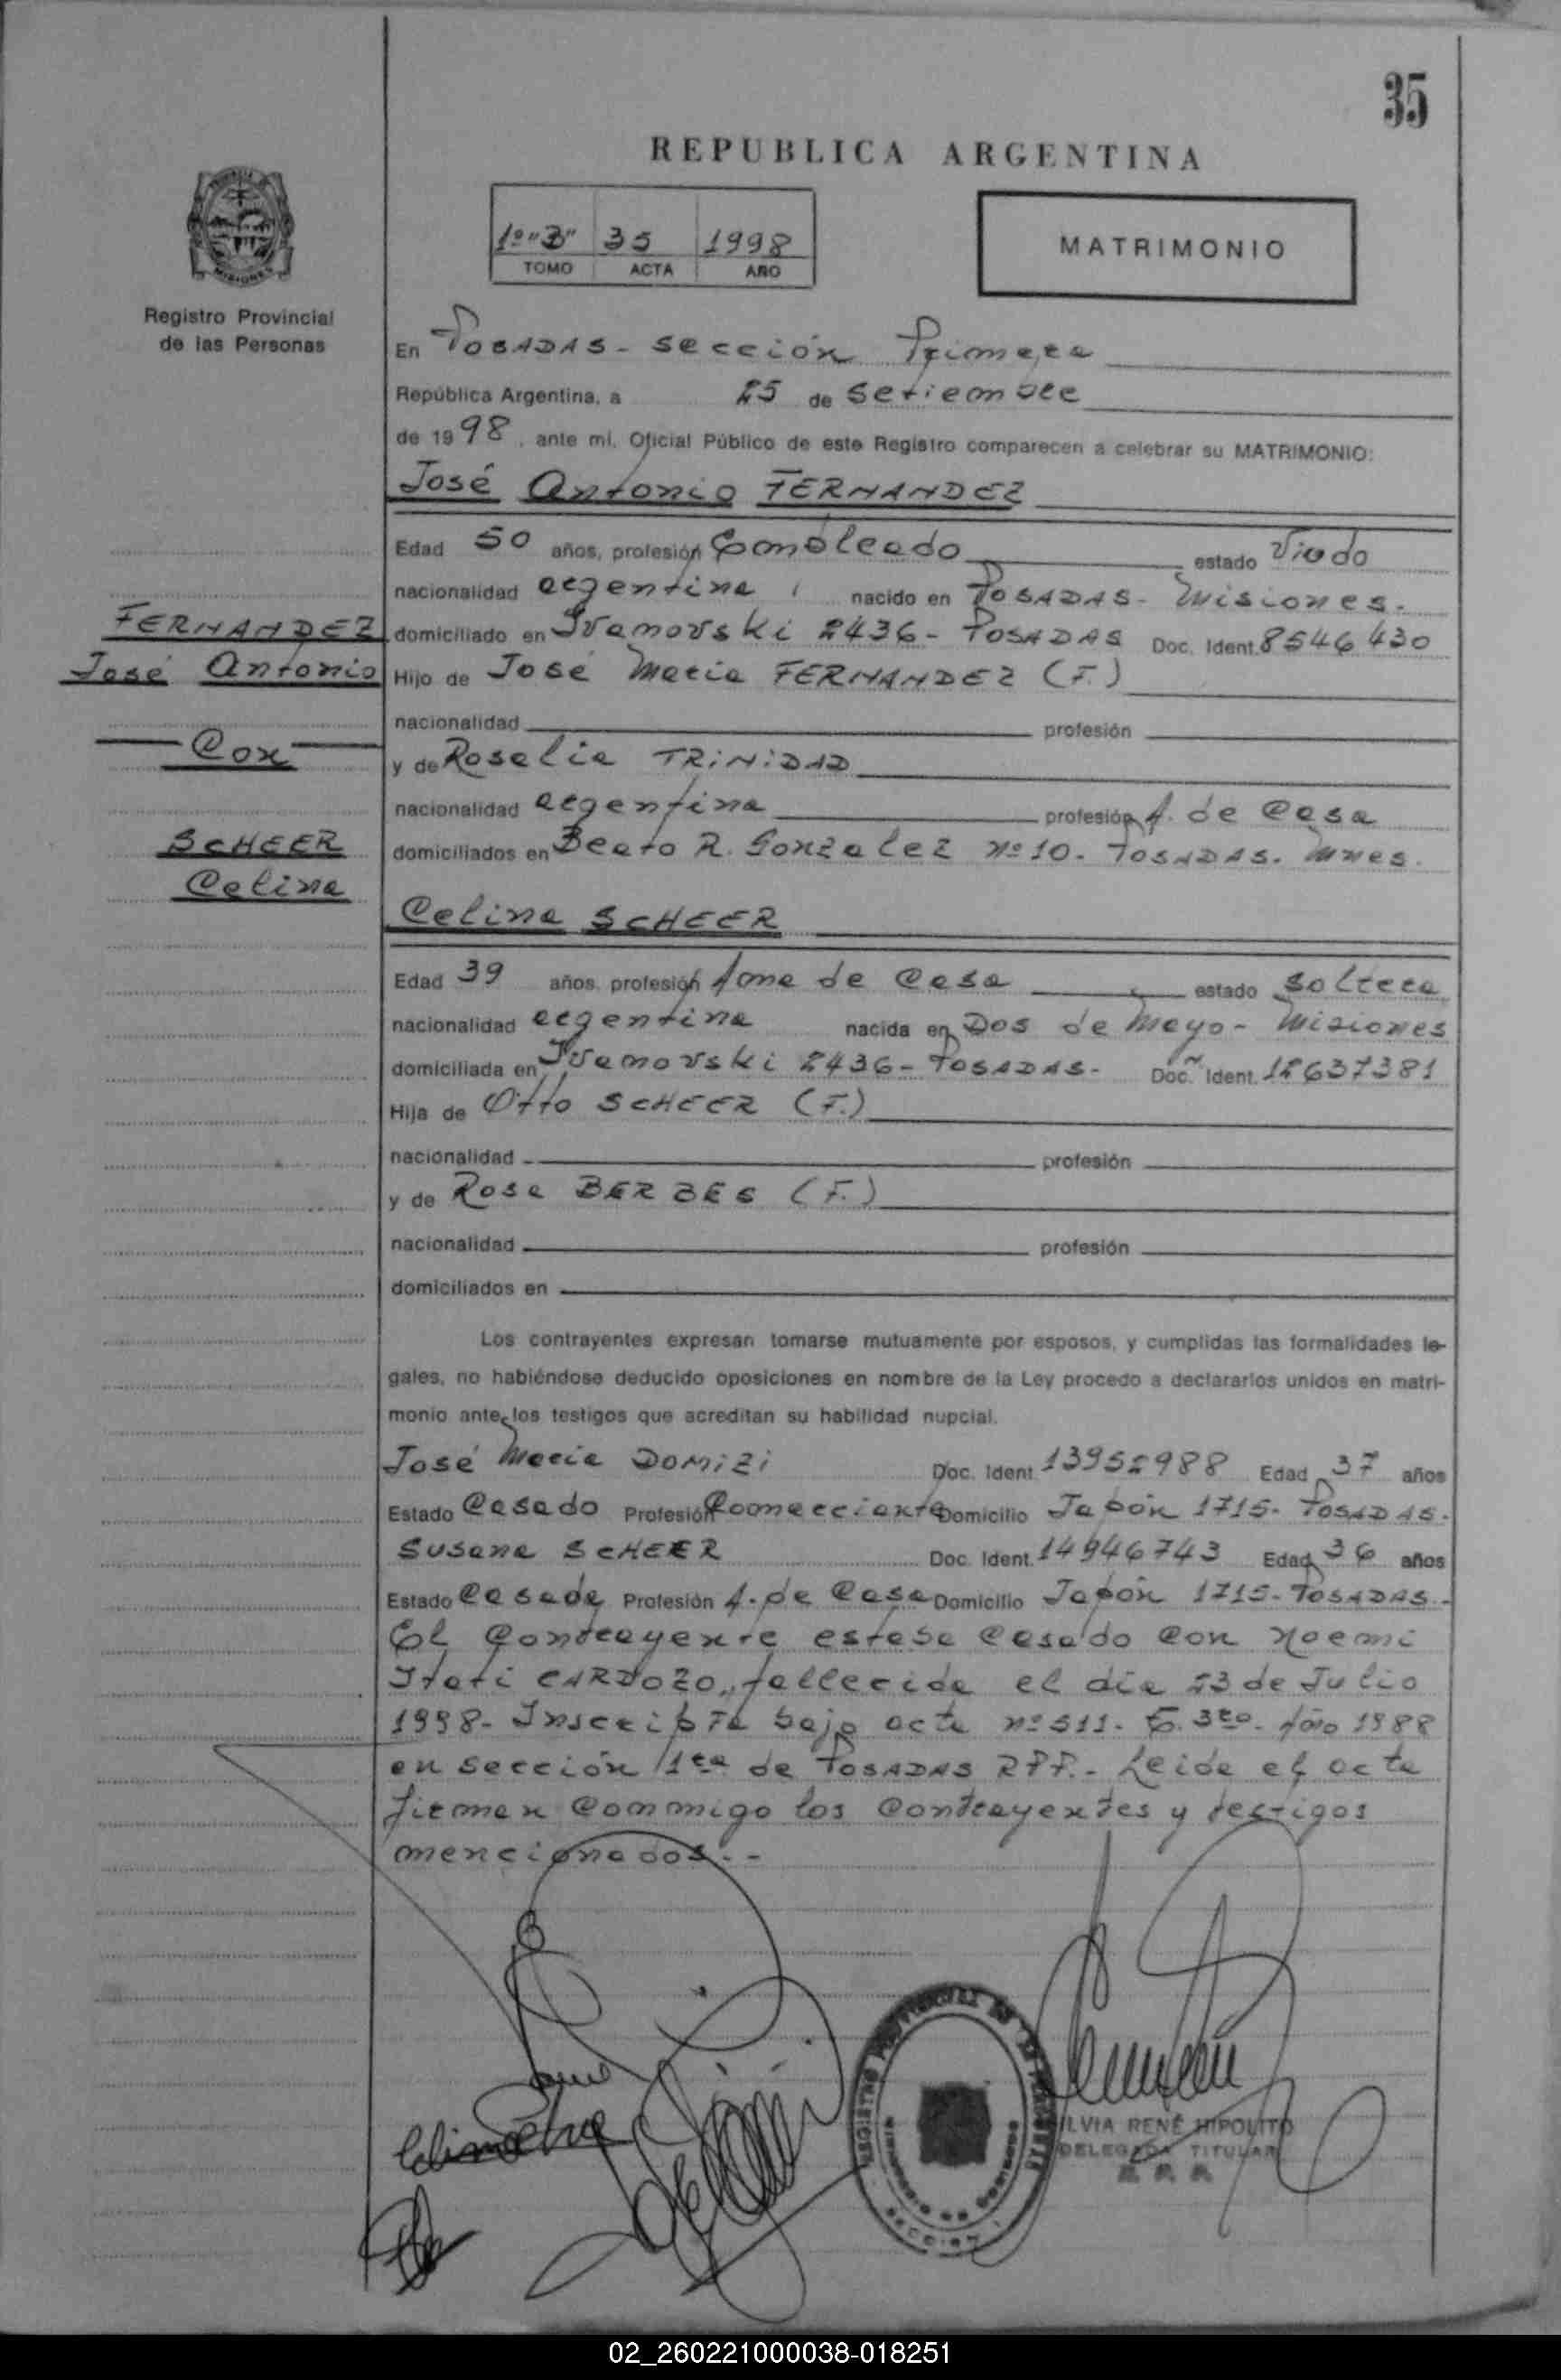 35
REPUBLICA ARGENTINA
1º "B" 35 1998
TOMO ACTA AÑO
MATRIMONIO
MISIONES
Registro Provincial
de las Personas
En POSADAS - Sección Primera
República Argentina, a 25 de Setiembre
de 1998, ante mi, Oficial Público de este Registro comparecen a celebrar su MATRIMONIO:
José Antonio FERNANDEZ
Edad 50 años, profesión Empleado estado Viudo
nacionalidad argentina, nacido en POSADAS - Misiones.
FERNANDEZ
domiciliado en Ivanovski 2436 - POSADAS Doc. Ident. 8546430
José Antonio
Hijo de José María FERNANDEZ (F.)
nacionalidad profesión
Con
y de Roselia TRINIDAD
nacionalidad argentina profesión A. de Casa
SCHEER
domiciliados en Beato R. Gonzalez nº 10. POSADAS. Mnes.
Celina
Celina SCHEER
Edad 39 años, profesión Ama de Casa estado Soltera
nacionalidad argentina nacida en Dos de Mayo - Misiones
domiciliada en Ivanovski 2436 - POSADAS - Doc. Ident. 12637381
Hija de Otto SCHEER (F.)
nacionalidad profesión
y de Rosa BERBES (F.)
nacionalidad profesión
domiciliados en
Los contrayentes expresan tomarse mutuamente por esposos, y cumplidas las formalidades le-
gales, no habiéndose deducido oposiciones en nombre de la Ley procedo a declararlos unidos en matri-
monio ante los testigos que acreditan su habilidad nupcial.
José María DOMIZI Doc. Ident. 13952988 Edad 37 años
Estado Casado Profesión Comerciante Domicilio Japón 1715 - POSADAS.
Susana SCHEER Doc. Ident. 14946743 Edad 36 años
Estado Casada Profesión A. de Casa Domicilio Japón 1715 - POSADAS. -
El Contrayente estaba Casado Con Noemi
Itatí CARDOZO, fallecida el día 23 de Julio
1998 - Inscripta bajo acta nº 511. T. 3ro. Año 1988
en Sección 1ra de POSADAS RPP. - Leida el acta
firman Conmigo los Contrayentes y testigos
mencionados. -
REGISTRO PROVINCIAL DE LAS PERSONAS
SILVIA RENÉ HIPOLITO
DELEGADA TITULAR
02_260221000038-018251